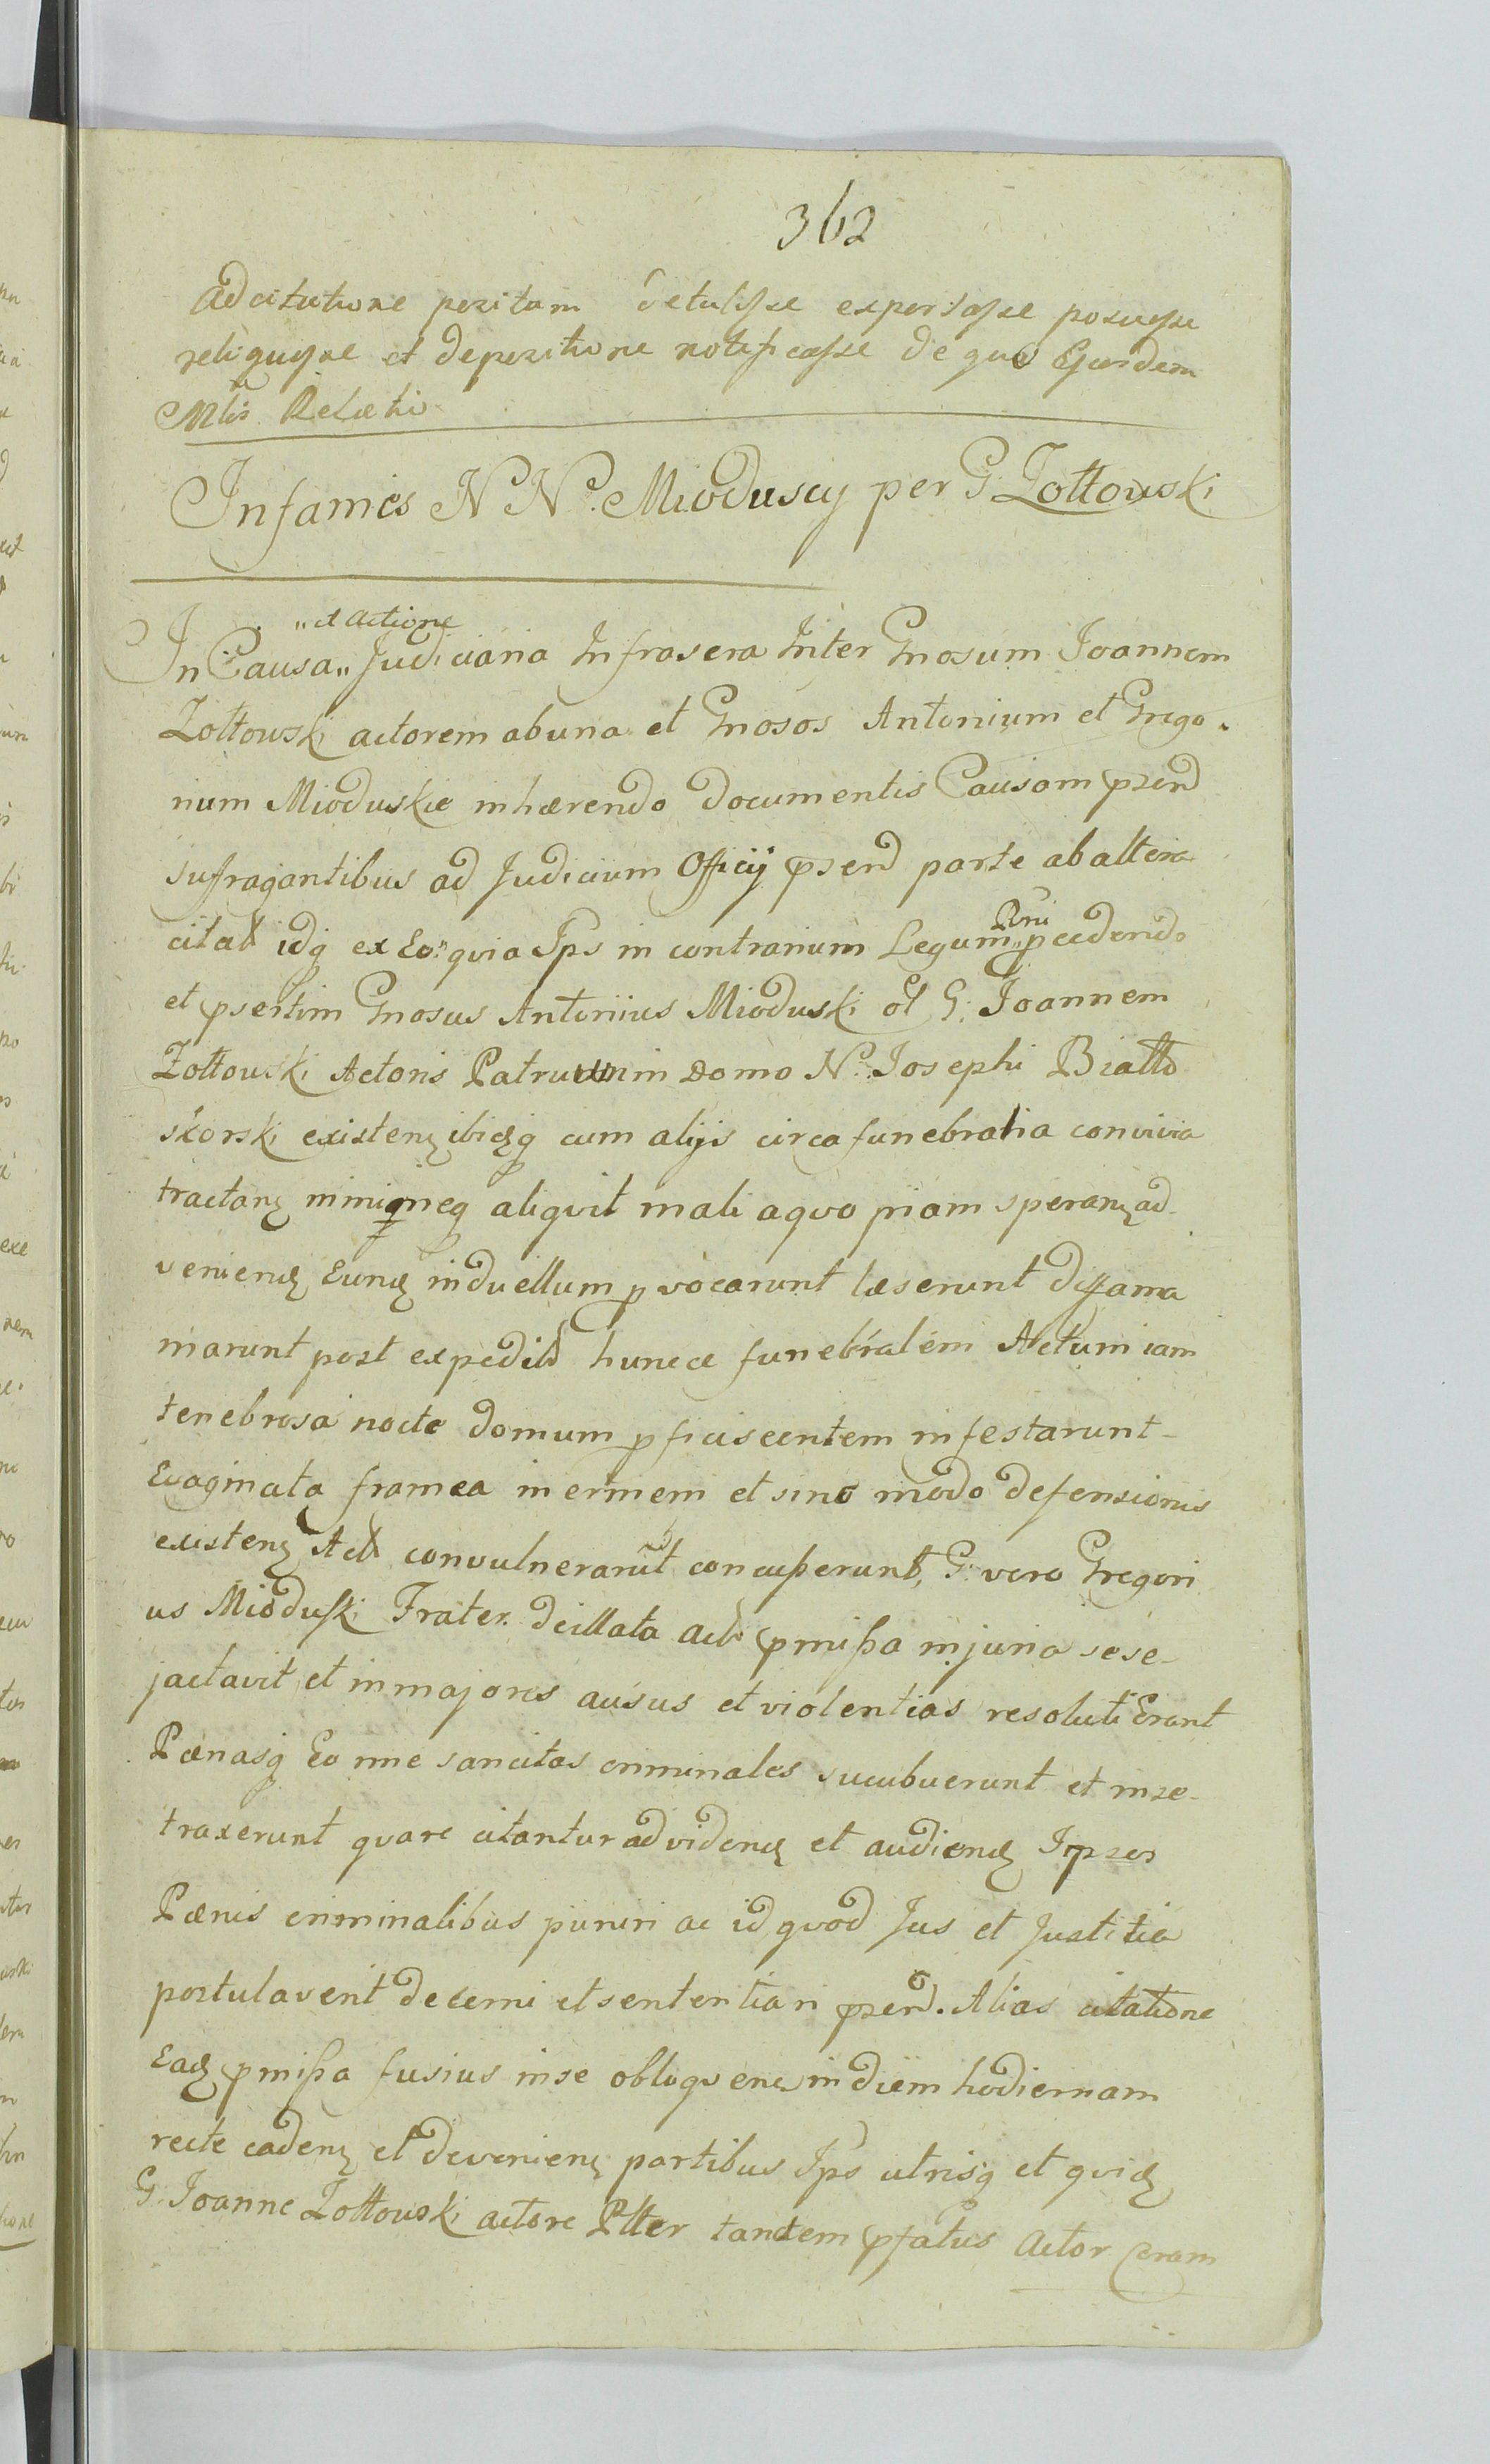 362
adcitatione peritam detulisse exportasse posuisse
reliquisse et depositione notificasse de quo Ejusdem
Mlis Relatio
Infamies N N. Mioduscy per G. Zołtowski
„et actione
In Causa „ Judiciaria Infrasera Inter Gnosum Joannem
Zołtowski actorem abuna et Gnosos Antonium et Grego
rium Mioduskie inhærendo documentis Causam pzend
sufragantibus ad Judicium Officij psend parte ab altera
Rni
citat idq ex Eo quia Ips in contrarium Legum „ pcedendo
et psertim Gnosus Antonius Mioduski ol G. Joannem
Zołtowski Actoris Patruum in Domo N. Josephi Biatto
skorski existen ibidq cum alijs circa funebralia convivia
tractan minimeq aliqvit mali aqvo piam speran ad
venien Eund induellum pvocarunt læserunt diffama
marunt post expedit hunce funebralem Actum iam
tenebrosa nocte domum pficiscentem infestarunt
Evaginata framea inermem et sine modo defensionis
existen Act convulnerarut concusserunt, G. vero Gregori
us Mioduski Frater deillata act pmissa injuria sese
jactavit et in majores ausus et violentias resoluti Erant
Pœnasq Eo nne sancitas criminales sucubuerunt et inse
traxerunt qvare citantur ad videnq et audienq Ipzos
Pœnis criminalibus puniri ac id qvod Jus et Justitia
postulaverit decerni et sententiari pzend. Alias citatione
Eadq pmissa fusius inse obloqven in diem hodiernam
recte caden et devenien partibus Ips utrisq et qvidq
G. Joanne Zołtowski actore Pltter tandem pfatus Actor coram